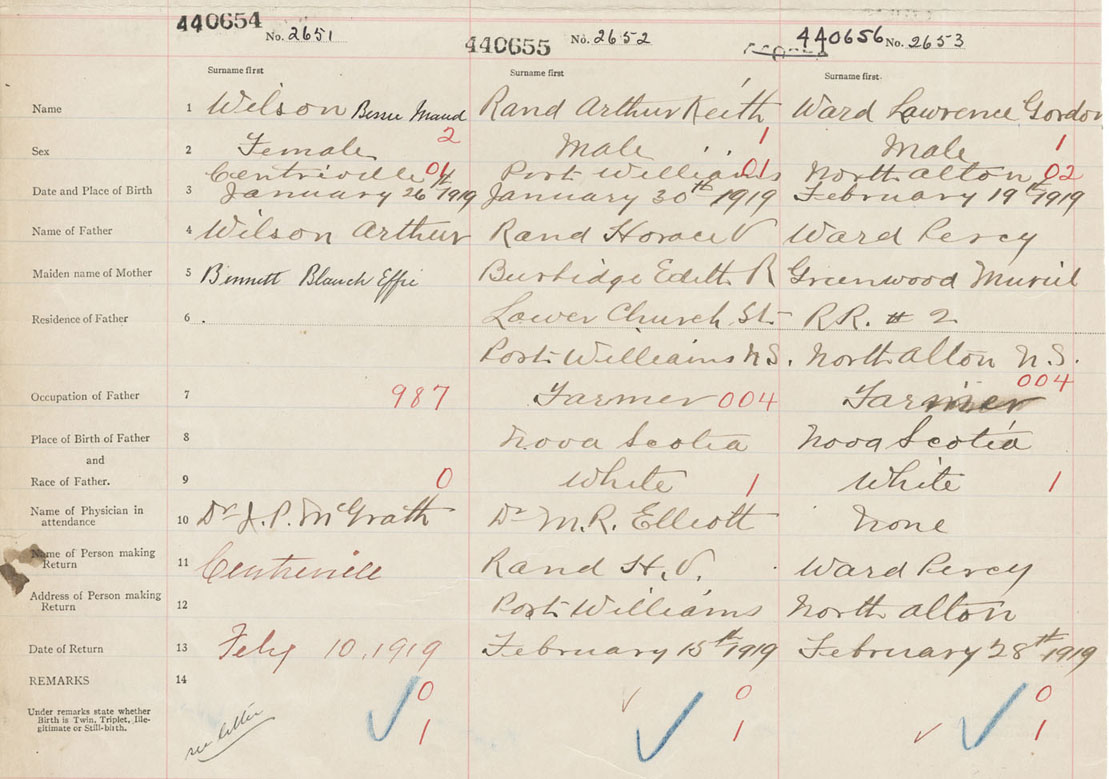 440654 No. 2651 440655 No. 2652 440656 No. 2653
Surname first Surname first Surname first
Name 1 Wilson Bessie Maud Rand Arthur Keith Ward Lawrence Gordon
Sex 2 Female 2 Male 1 Male 1
Centriville 01 Port Williams 01 North Alton 02
Date and Place of Birth 3 January 26th 1919 January 30th 1919 February 19th 1919
Name of Father 4 Wilson Arthur Rand Horace V Ward Percy
Maiden name of Mother 5 Bennett Blanch Effie Burbidge Edith R Greenwood Muriel
Residence of Father 6 Lower Church St. R.R. # 2
Port Williams N.S. North Alton N.S.
Occupation of Father 7 987 Farmer 004 Farmer 004
Place of Birth of Father 8 Nova Scotia Nova Scotia
and
Race of Father. 9 0 White 1 White 1
Name of Physician in
attendance 10 Dr J. P. McGrath Dr M.R. Elliott None
Name of Person making
Return 11 Centreville Rand H. V. Ward Percy
Address of Person making
Return 12 Port Williams North Alton
Date of Return 13 Feby 10, 1919 February 15th 1919 February 28th 1919
REMARKS 14 0 0 0
Under remarks state whether
Birth is Twin, Triplet, Ille-
gitimate or Still-birth. see letter 1 1 1